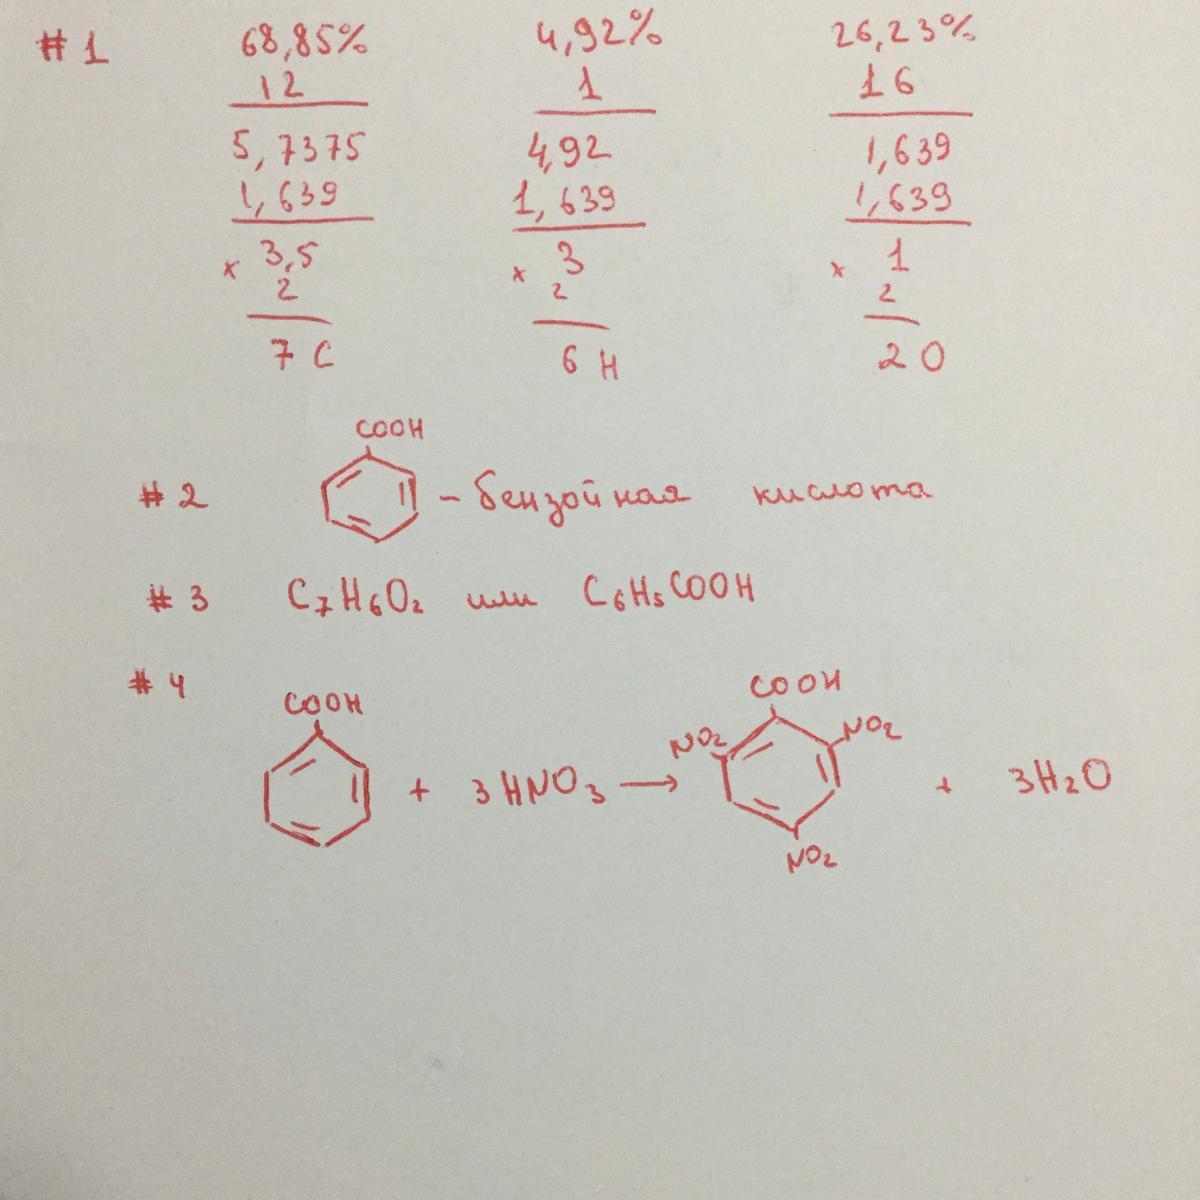 # 1 68,85% 4,92% 26,23%
12 1 16
5,7375 4,92 1,639
1,639 1,639 1,639
x 3,5 x 3 x 1
2 2 2
7 C 6 H 2 O
COOH
# 2 - бензойная кислота
# 3 C₇H₆O₂ или C₆H₅COOH
# 4
COOH COOH
NO₂ NO₂
+ 3HNO₃ → + 3H₂O
NO₂